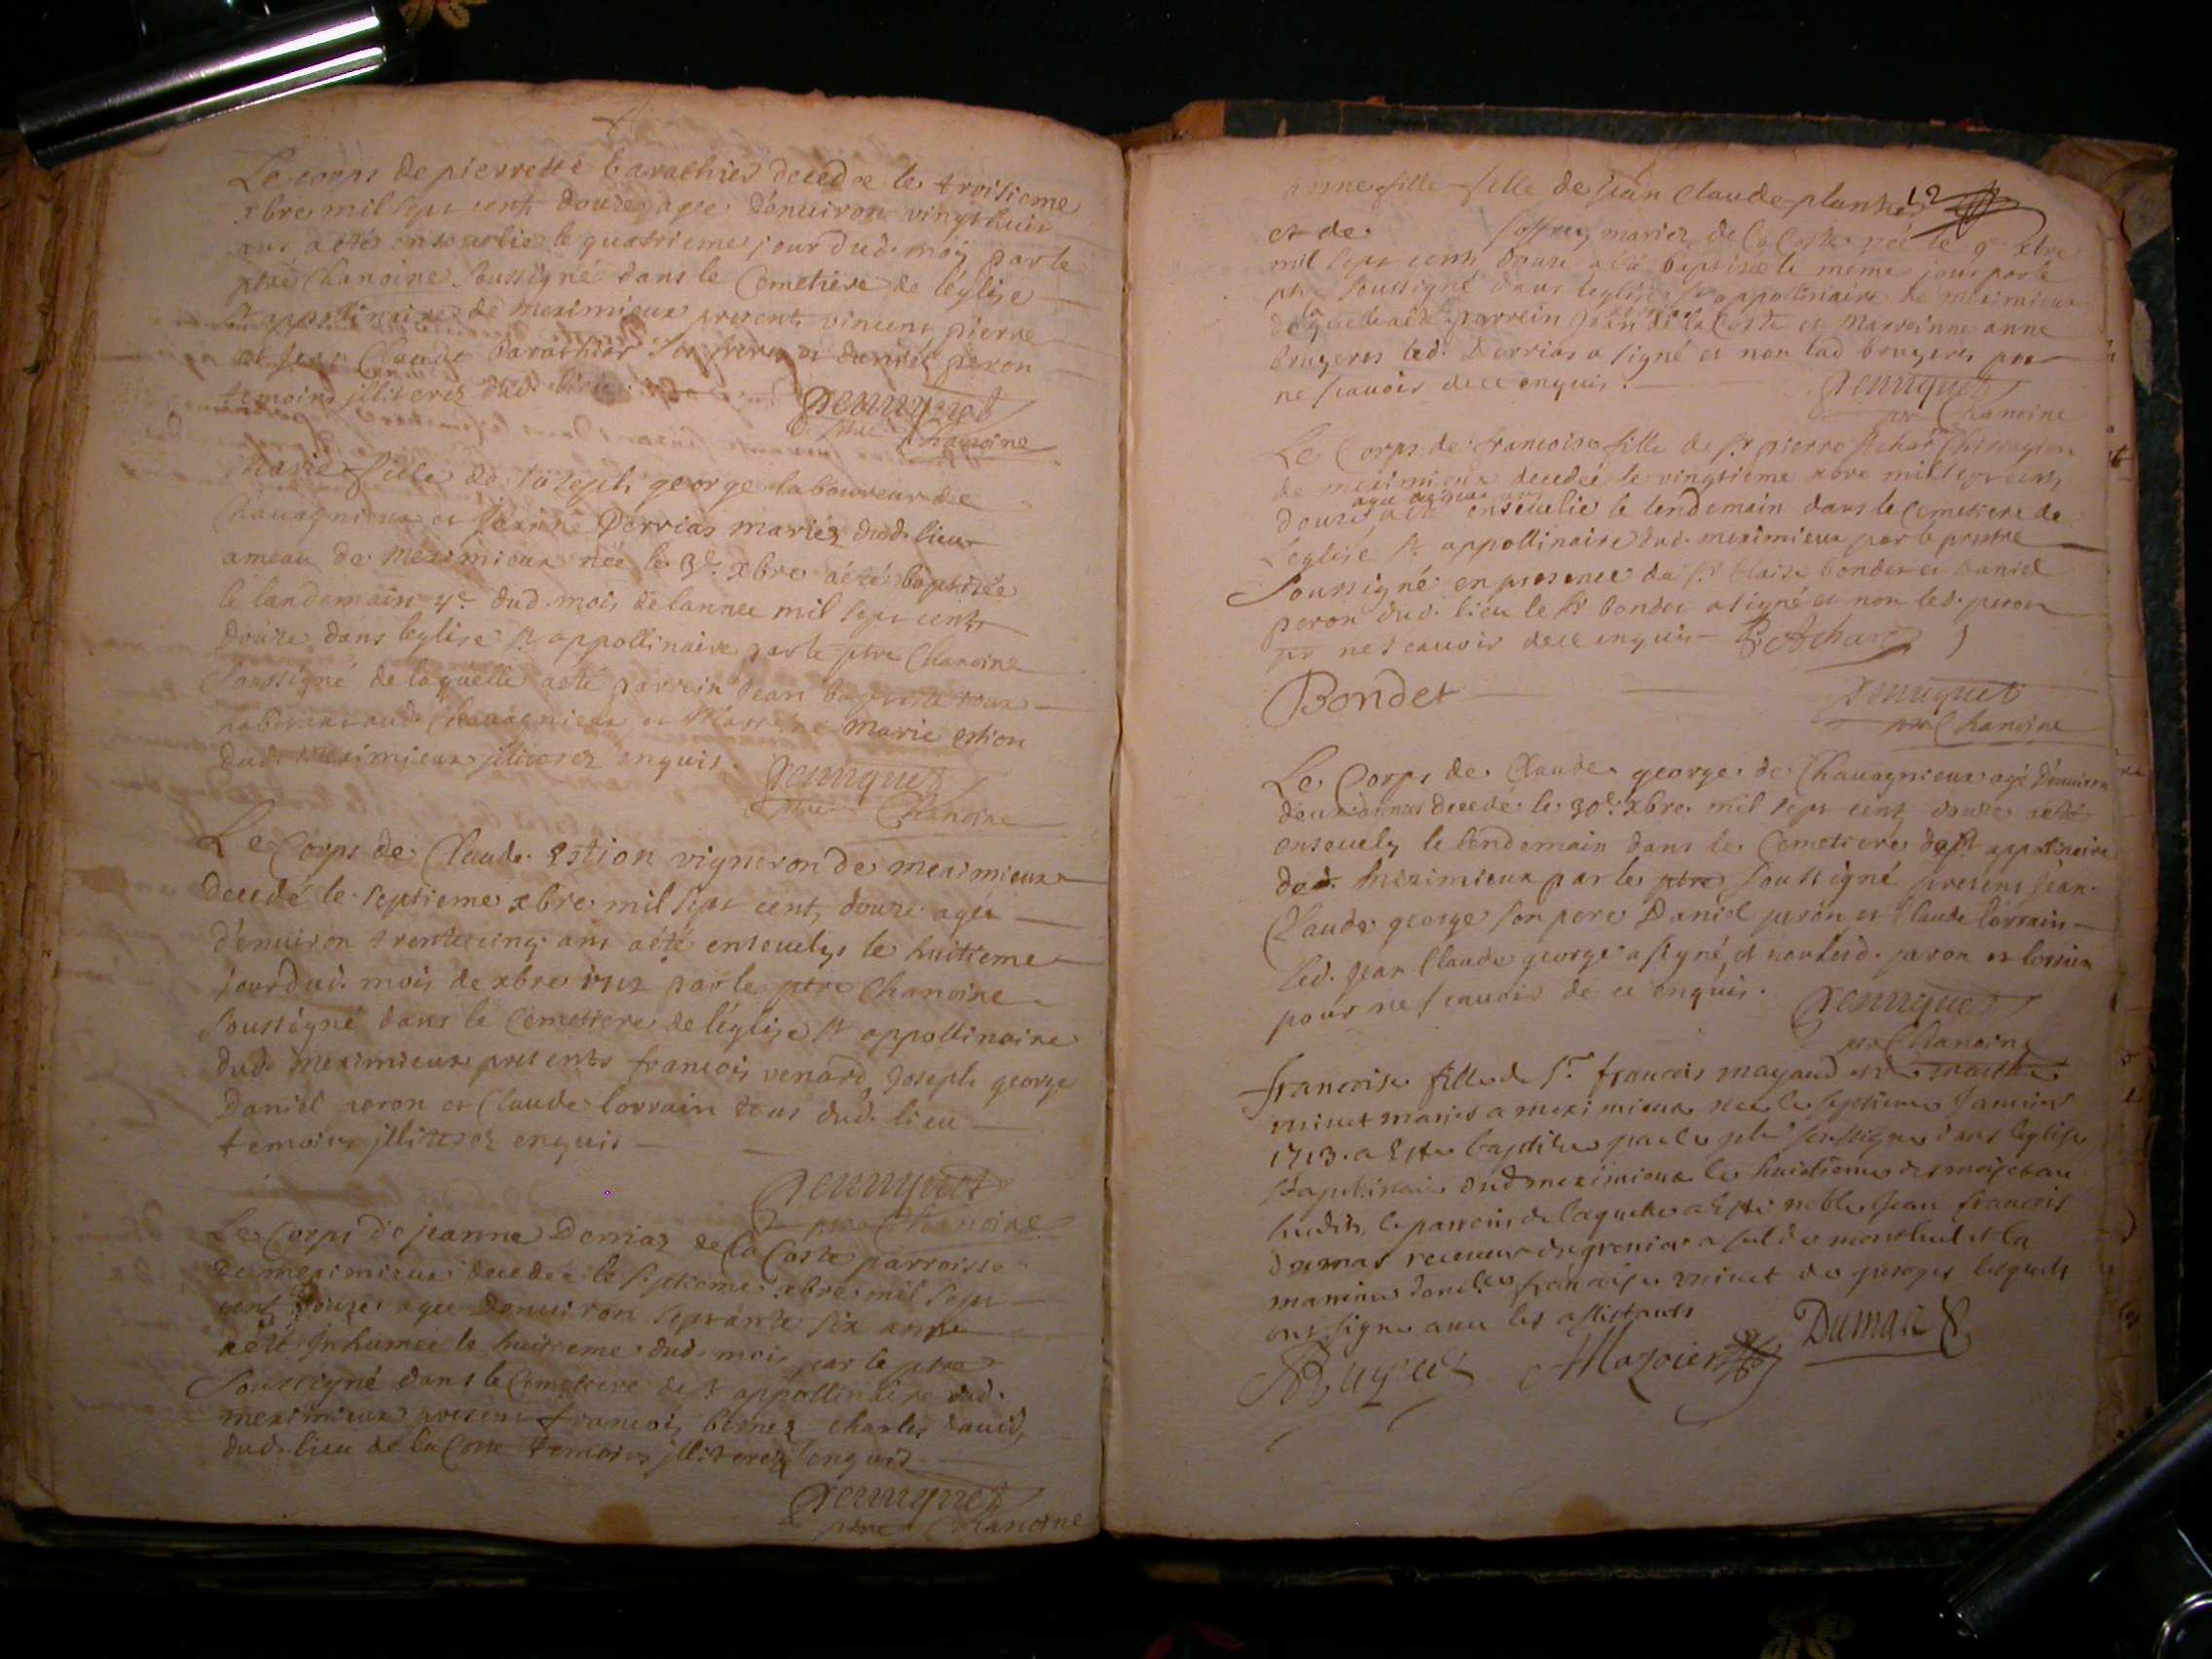 Le corps de pierrette barathier decedee le troisieme
xbre mil sept cents douze agee d'enuiron vingt huit
ans a été enseuelie le quatrieme jour dud. mois par le
ptre Chanoine soussigné dans le Cemetiere de l'église
st appolinaire de meximieux present vincent pierre
et jean Claude barathier ses freres et daniel peron
temoins illiterez dud. lieu.
ptre Chanoine
Marie fille de joseph george laboureur de
Chauagnieux et jeanne Derrias mariez dud. lieu
ameau de meximieux née le 3e. xbre a été baptisée
le landemain 4e dud. mois de lannee mil sept cents
douze dans leglise st appollinaire par le ptre Chanoine
soussigné de laquelle a été parrein jean baptiste roux
habitant aud. Chauagnieux et Marreine marie estion
dud. meximieux illiterez enquis.
ptre Chanoine
Le Corps de Claude Estion vigneron de meximieux
decedé le septieme xbre mil sept cents douze agée
d'enuiron trente cinq ans a été enseuely le huitieme
jour dud. mois de xbre 1712 par le ptre Chanoine
soussigné dans le Cemetiere de l'église st appollinaire
dud. meximieux presents francois venard, joseph george
Daniel peron et Claude lorrain tous dud. lieu
temoins illiterez enquis
ptre Chanoine
Le Corps de jeanne Derriaz de la Coste parroisse
de meximieux decedée le septieme xbre mil sept
cent douze agee denuiron septante six ans
a été Inhumee le huitieme dud. mois par le ptre
soussigné dans le Cemetiere de st appollinaire dud.
meximieux present francois bernez, charles dauid,
dud. lieu de la Coste temoins illiterez enquis
ptre Chanoine
12
fille de jean Claude
et de mariez de la Coste née le 9e xbre
mil sept cents douze a été baptisée le meme jour par le
ptre soussigné dans leglise st appollinaire de meximieux
de laquelle a été parrein jean de la Coste et Marreinne anne
bruyeres led. Derrias a signé et non lad bruyeres pour
ne scauoir de ce enquis.
ptre Chanoine
Le Corps de francoise fille de sr pierre Achar Chirurgien
de meximieux decedée le vingtieme xbre mil sept cents
douze a été enseuelie le lendemain dans le Cemetiere de
Leglise st appollinaire dud. meximieux par le prestre
soussigné en presence de sr blaise bondet et daniel
peron dud. lieu le sr bondet a signé et non led. peron
pr ne scauoir de ce enquis P. Achard
Bondet
ptre Chanoine
Le Corps de Claude george de Chauagnieux agé d'enuiron
deux années decedé le 30e. xbre mil sept cents douze a été
enseuely le lendemain dans le Cemetiere de st appolinaire
dud. Meximieux par le ptre soussigné present jean
Claude george son pere Daniel peron et Claude lorrain
led. jean Claude george a signé, et non lesd. peron et lorrain
pour ne scauoir de ce enquis.
ptre Chanoine
francoise fille de sr francois mayaud et de marthe
minet mariés a meximieux née le septieme januier
1713. a Esté baptisée par le ptre soussigné dans leglise
dud meximieux le huictieme des mois et an
susdits, le parrein de laquelle a Esté noble jean francois
dumas receueur du grenier a sel de montluel et la
marine francoise minet de peroges lesquels
ont signé auec les assistants
Dumas